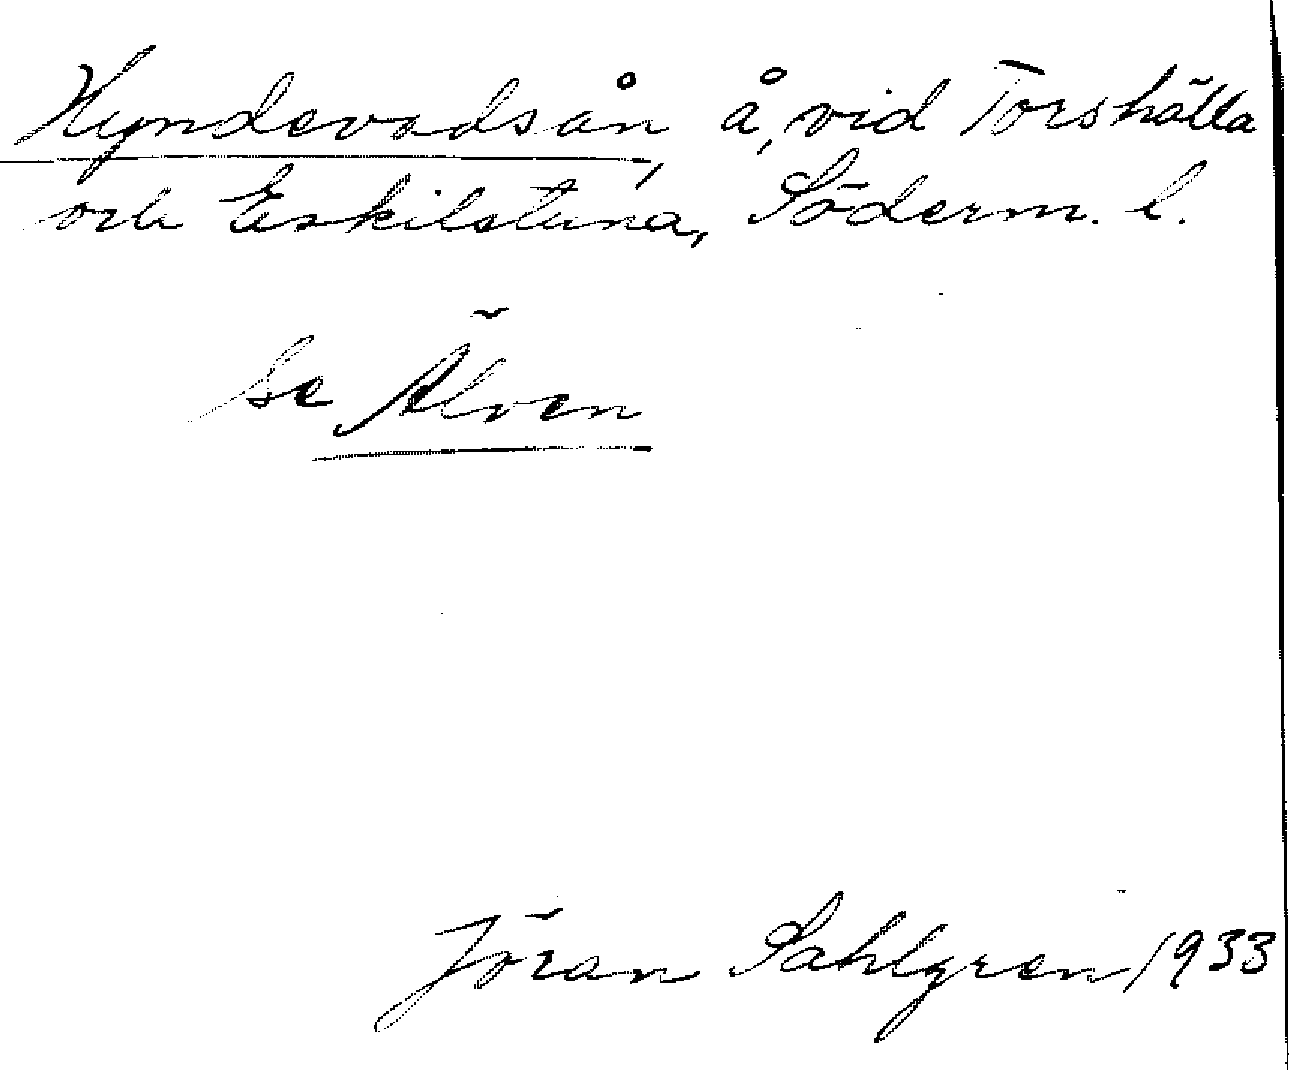 Hyndevadsån, å, vid Torshälla
och Eskilstuna, Söderm. l.
Se Älven
Jöran Sahlgren 1933